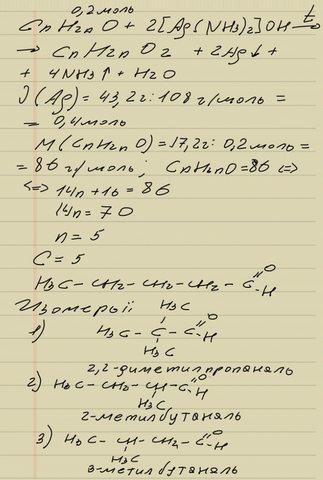 0,2моль
CnH2nO + 2[Ag(NH3)2]OH t→
→ CnH2nO2 + 2Ag↓ +
+ 4NH3↑ + H2O
ν(Ag) = 43,2г : 108 г/моль =
= 0,4моль
M(CnH2nO) = 17,2г : 0,2моль =
= 86 г/моль; CnH2nO = 86 <=>
<=> 14n + 16 = 86
14n = 70
n = 5
C = 5
H3C - CH2 - CH2 - CH2 - C=O -H
Изомеры:
H3C
1) H3C - C - C=O -H
H3C
2,2-диметилпропаналь
2) H3C - CH2 - CH - C=O -H
H3C
2-метилбутаналь
3) H3C - CH - CH2 - C=O -H
H3C
3-метилбутаналь